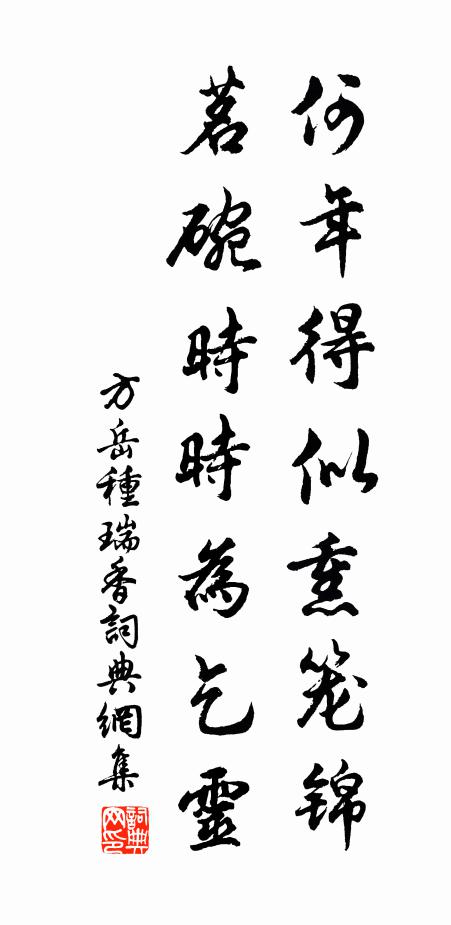 何年得似熏笼锦
茗碗時時為乞靈
方岳種瑞香詞典網集
詞典网印